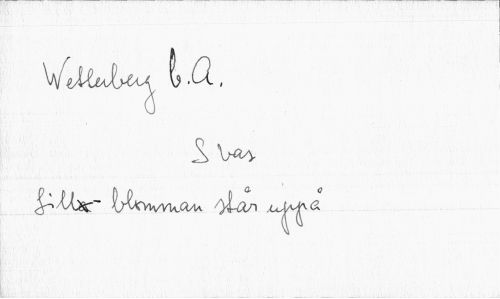 Wetterberg C. A.
Svar
Sill- blomman står uppå